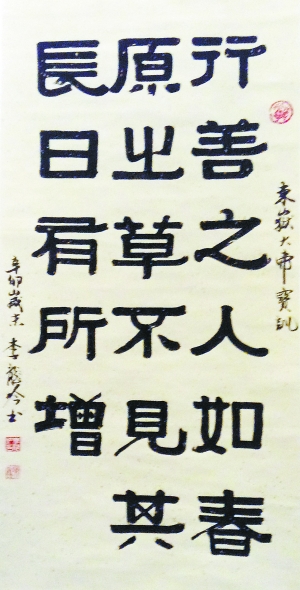 東嶽大帝寶訓
行善之人如春
原之草不見其
長日有所增
辛卯歲末 李